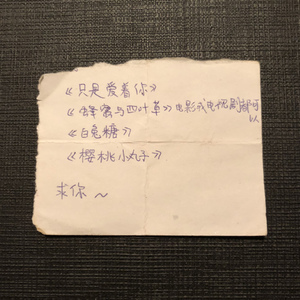 《只是爱着你》
《蜂蜜与四叶草》电影或电视剧都可以
《白兔糖》
《樱桃小丸子》
求你～